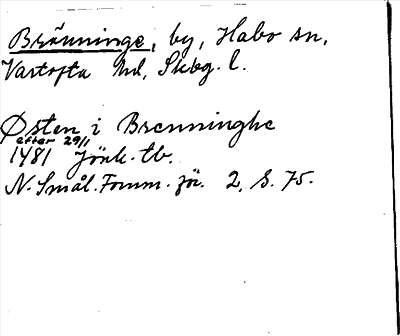 Bränninge, by, Habo sn,
Vartofta hd, Skbg. l.
Østen i Brenninghe
efter 29/1
1481 Jönk. tb.
N. Smål. Fornm. för. 2, S. 75.